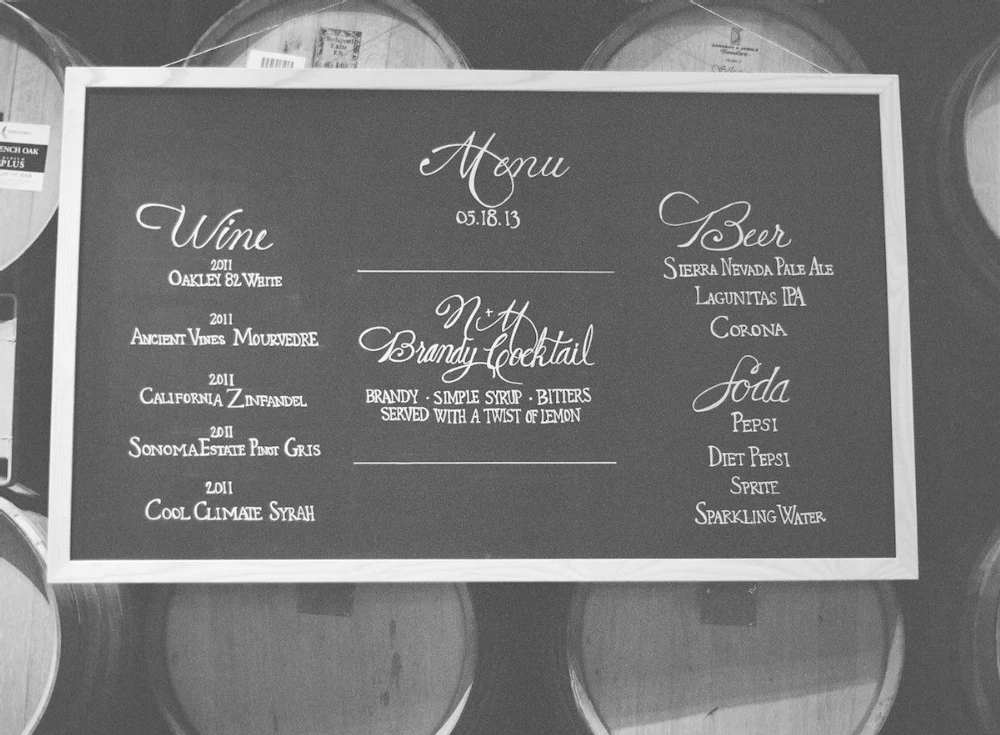 Menu
05.18.13
Wine
2011
OAKLEY 82 WHITE
2011
ANCIENT VINES MOURVEDRE
2011
CALIFORNIA ZINFANDEL
2011
SONOMA ESTATE PINOT GRIS
2011
COOL CLIMATE SYRAH
N+M
Brandy Cocktail
BRANDY · SIMPLE SYRUP · BITTERS
SERVED WITH A TWIST OF LEMON
Beer
SIERRA NEVADA PALE ALE
LAGUNITAS IPA
CORONA
Soda
PEPSI
DIET PEPSI
SPRITE
SPARKLING WATER
ENCH OAK
PLUS